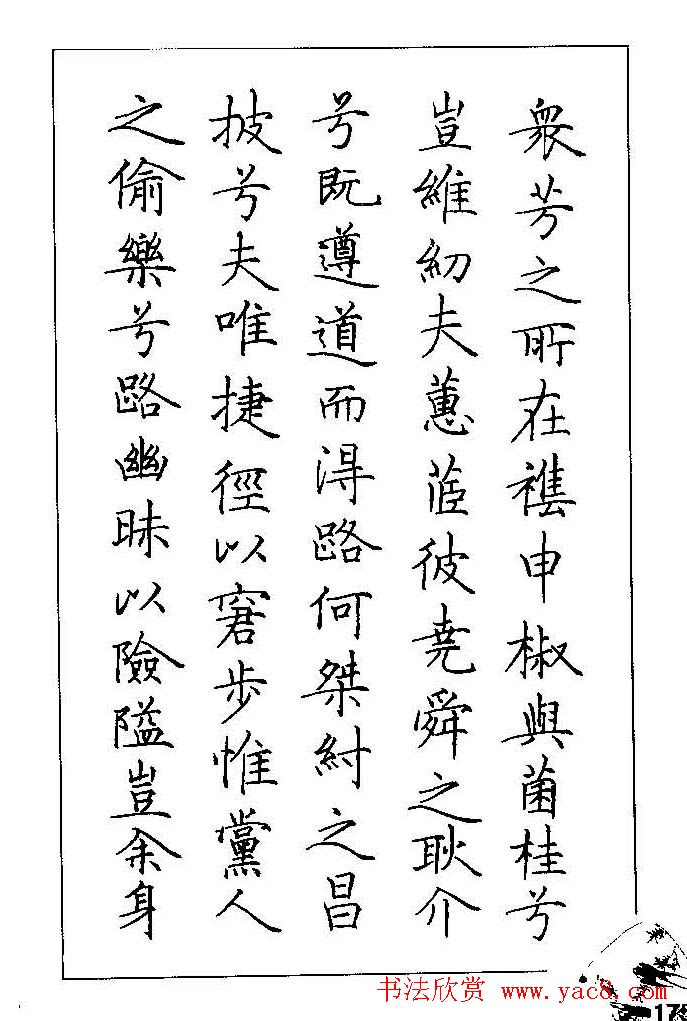 衆芳之所在襍申椒與菌桂兮
豈維紉夫蕙茝彼堯舜之耿介
兮既遵道而得路何桀紂之昌
披兮夫唯捷徑以窘步惟黨人
之偷樂兮路幽昧以險隘豈余身
书法欣赏 www.yac8.com